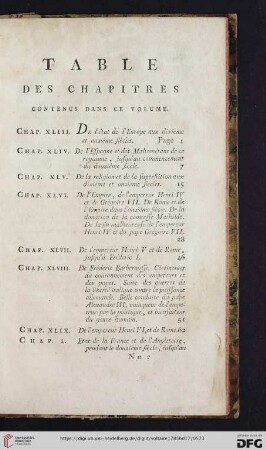 TABLE
DES CHAPITRES
CONTENUS DANS CE VOLUME.
CHAP. XLIII. De l'état de l'Europe aux dixieme
et onzieme siècles. Page 1
CHAP. XLIV. De l'Espagne et des Mahométans de ce
royaume, jusqu'au commencement
du douzieme siècle. 7
CHAP. XLV. De la religion et de la superstition aux
dixieme et onzieme siècles. 15
CHAP. XLVI. De l'Empire, de l'empereur Henri IV
et de Grégoire VII. De Rome et de
l'Empire dans l'onzieme siècle. De la
donation de la comtesse Mathilde.
De la fin malheureuse de l'empereur
Henri IV et du pape Grégoire VII.
28
CHAP. XLVII. De l'empereur Henri V et de Rome,
jusqu'à Fréderic I. 46
CHAP. XLVIII. De Fréderic Barberousse. Cérémonies
du couronnement des empereurs et
des papes. Suite des guerres de
la liberté italique contre la puissance
allemande. Belle conduite du pape
Alexandre III, vainqueur de l'empe-
reur par la politique, et bienfaiteur
du genre humain. 51
CHAP. XLIX. De l'empereur Henri VI, et de Rome. 60
CHAP. L. Etat de la France et de l'Angleterre,
pendant le douzieme siècle, jusqu'au
N n 2
UNIVERSITÄTS-
BIBLIOTHEK
HEIDELBERG
Gefördert durch
DFG